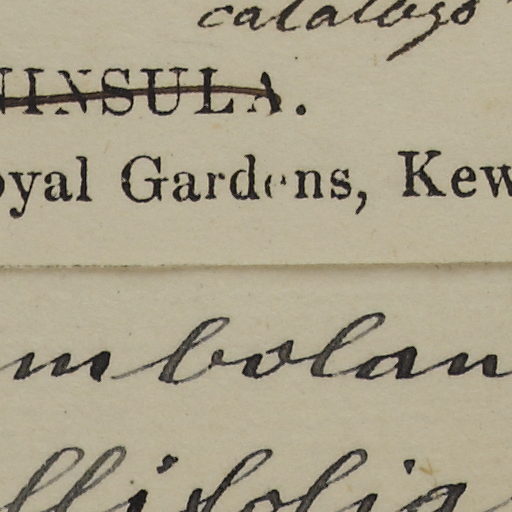 catalogo
NINSULA.
oyal Gardens, Kew
mbolan
llifolia